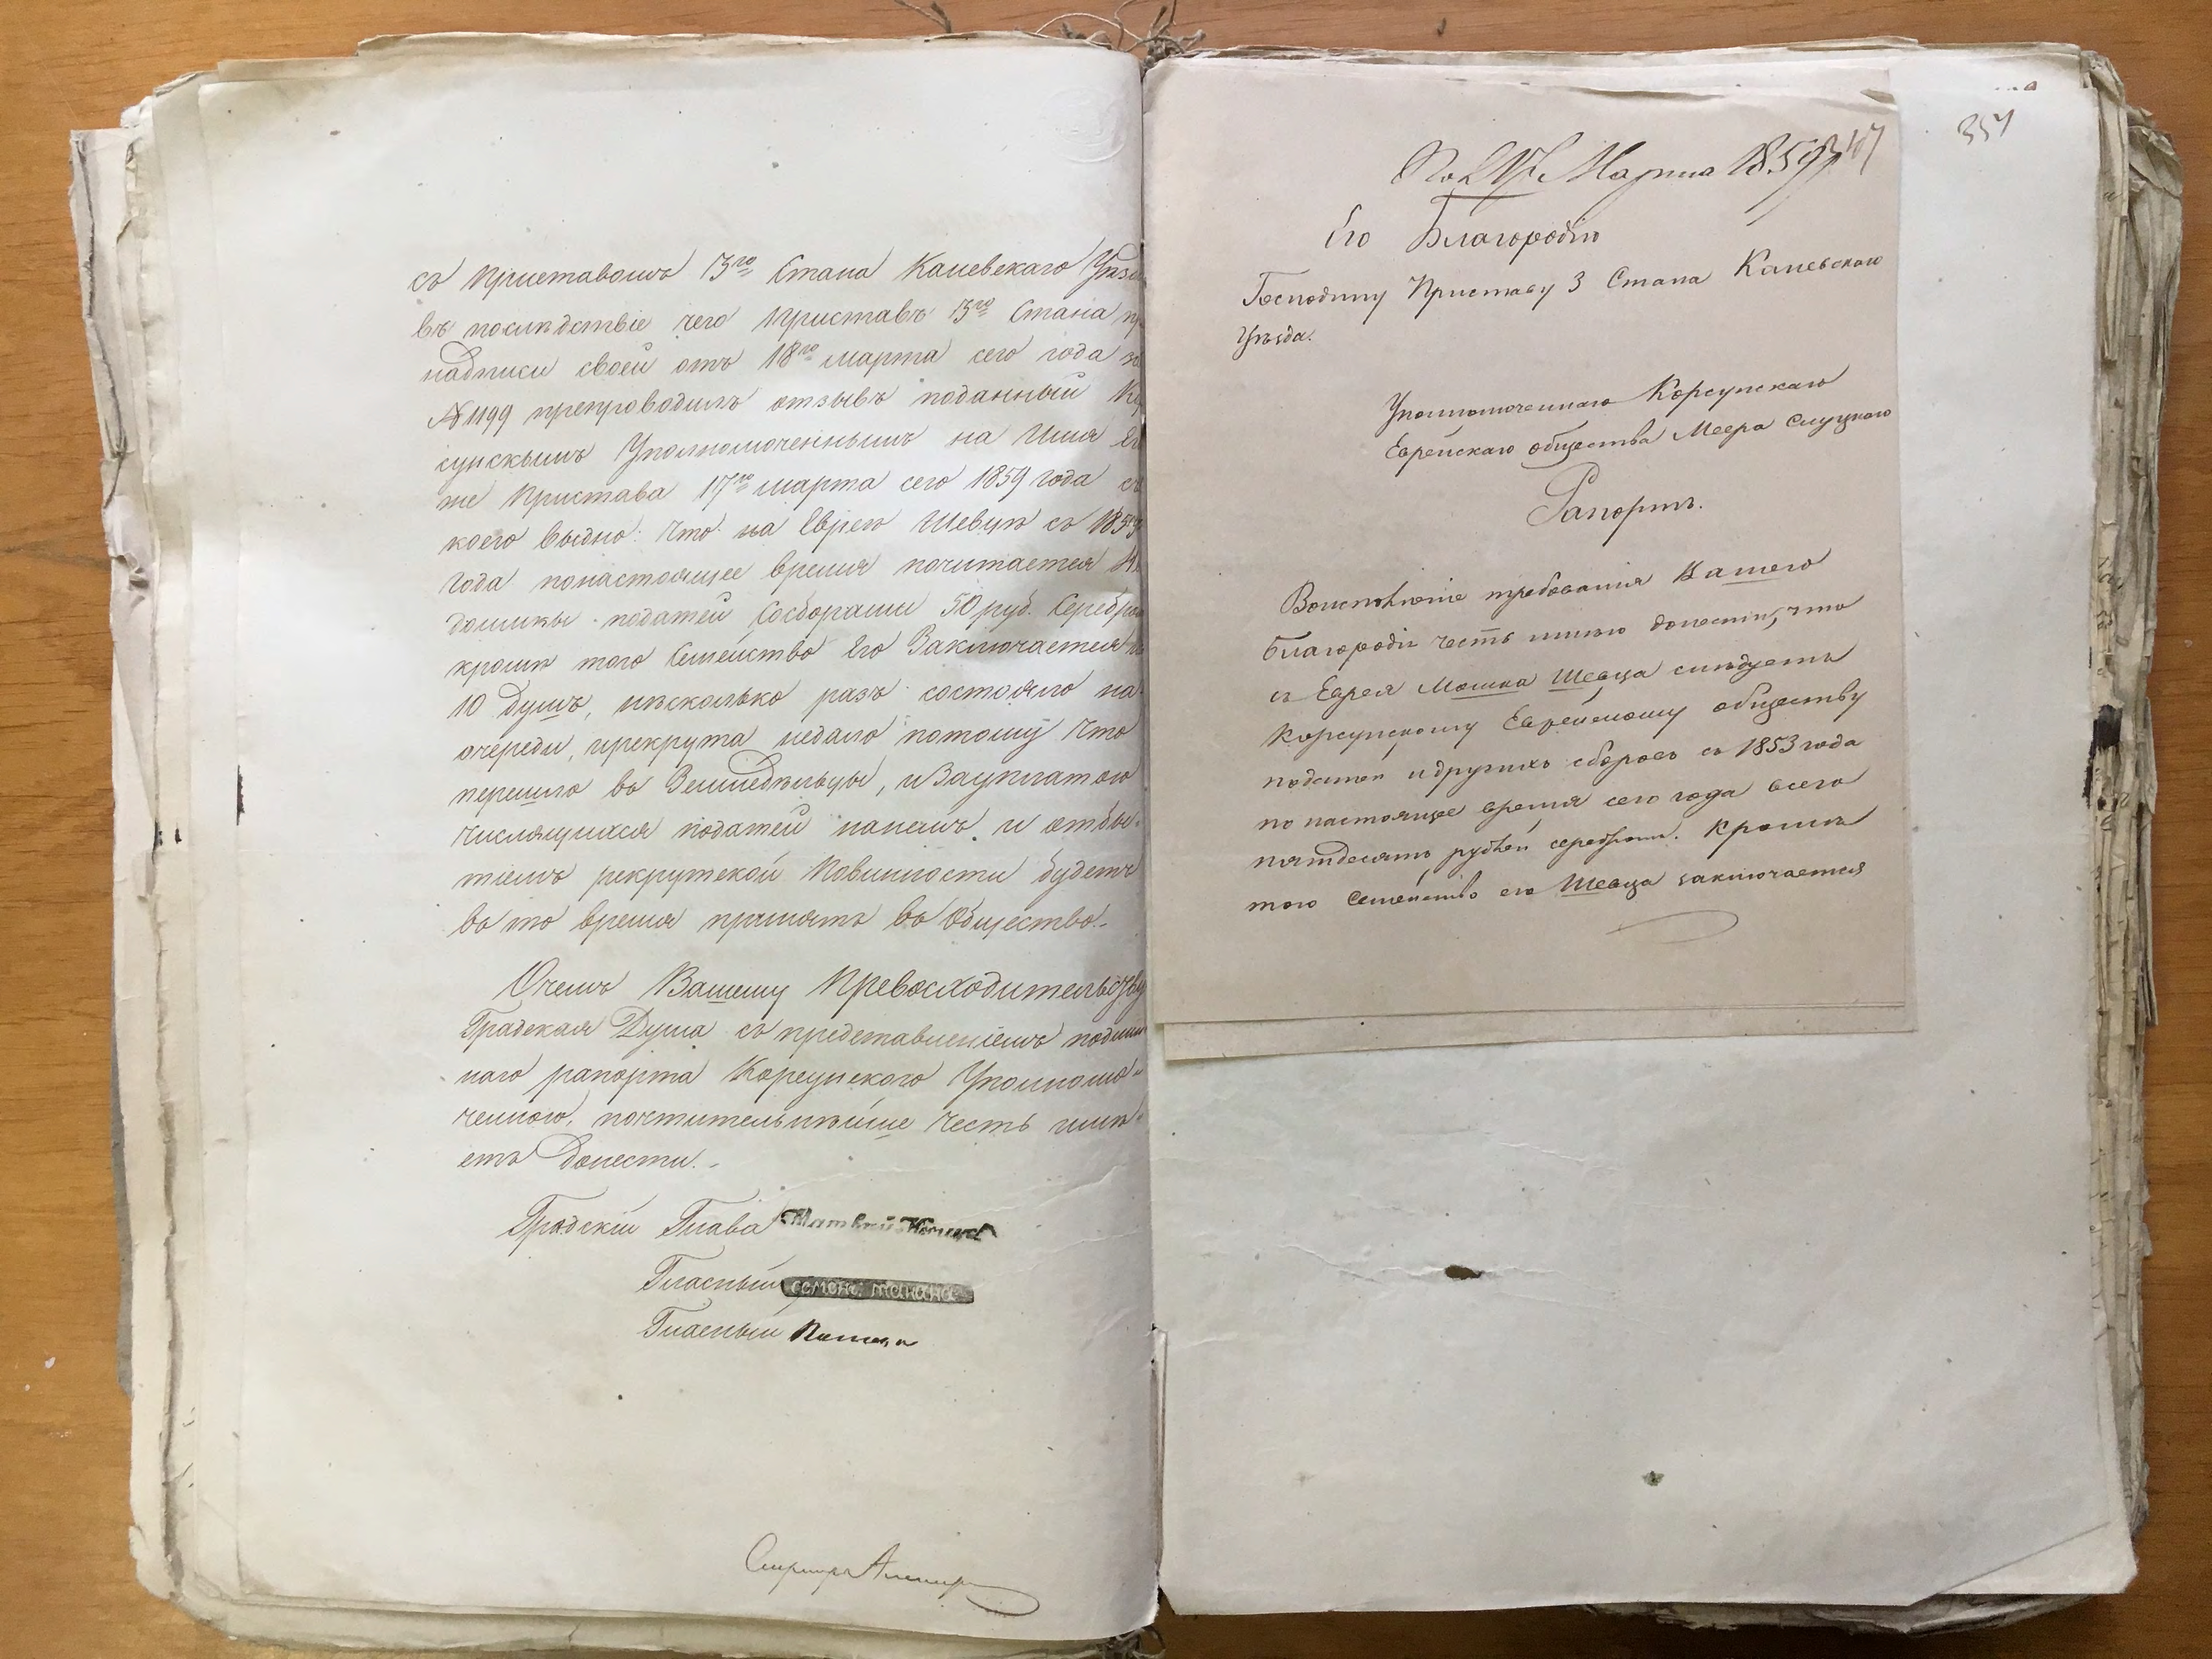 съ Приставомъ 3го Стана Каневскаго Уѣз
въ послѣдствіе чего Приставъ 3го Стана
надписи своей отъ 18го марта сего года за
№ 1199 препроводилъ отзывъ поданный Кор
сунскымъ Уполномоченнымъ на Имя Его
же Пристава 17го марта сего 1859 года съ
коего выдно: что на Еврею Шевцѣ съ 1853
года понастоящее время почитается Не
доимкы податей Сосборами 50 руб. Серебро
кромѣ того Семейство Его Заключается
10 душъ, нѣсколько разъ состояло на
очереди, ирекрута недало потому что
перешло въ Земледѣльцы, и Зауплатою
числящихся податей нанемъ и отбы-
тіемъ рекрутской Повинности будетъ
въ то время принятъ въ Общество.
Очемъ Вашему Превосходительству
Градская Дума съ представленіемъ подлин
наго рапорта Корсунского Уполномо-
ченного, почтительнѣйше Честь имѣ-
етъ Донести.
Градскій Глава Матвѣй
Гласный семенъ
Гласный
351
Марта 1859
Его Благородію
Господину Приставу 3 Стана Каневского
Уѣзда.
Уполномоченнаго Корсунскаго
Еврейскаго общества Меера Слуцкого
Рапортъ.
Воисполненіе требованія Вашего
Благородія честь имѣю донести, что
съ Еврея Мошка Шевца слѣдуетъ
Корсунскому Еврейскому обществу
податей идругихъ сборовъ съ 1853 года
по настоящее время сего года всего
пятдесятъ рублей серебромъ. Кромѣ
того Семейство его Шевца заключается